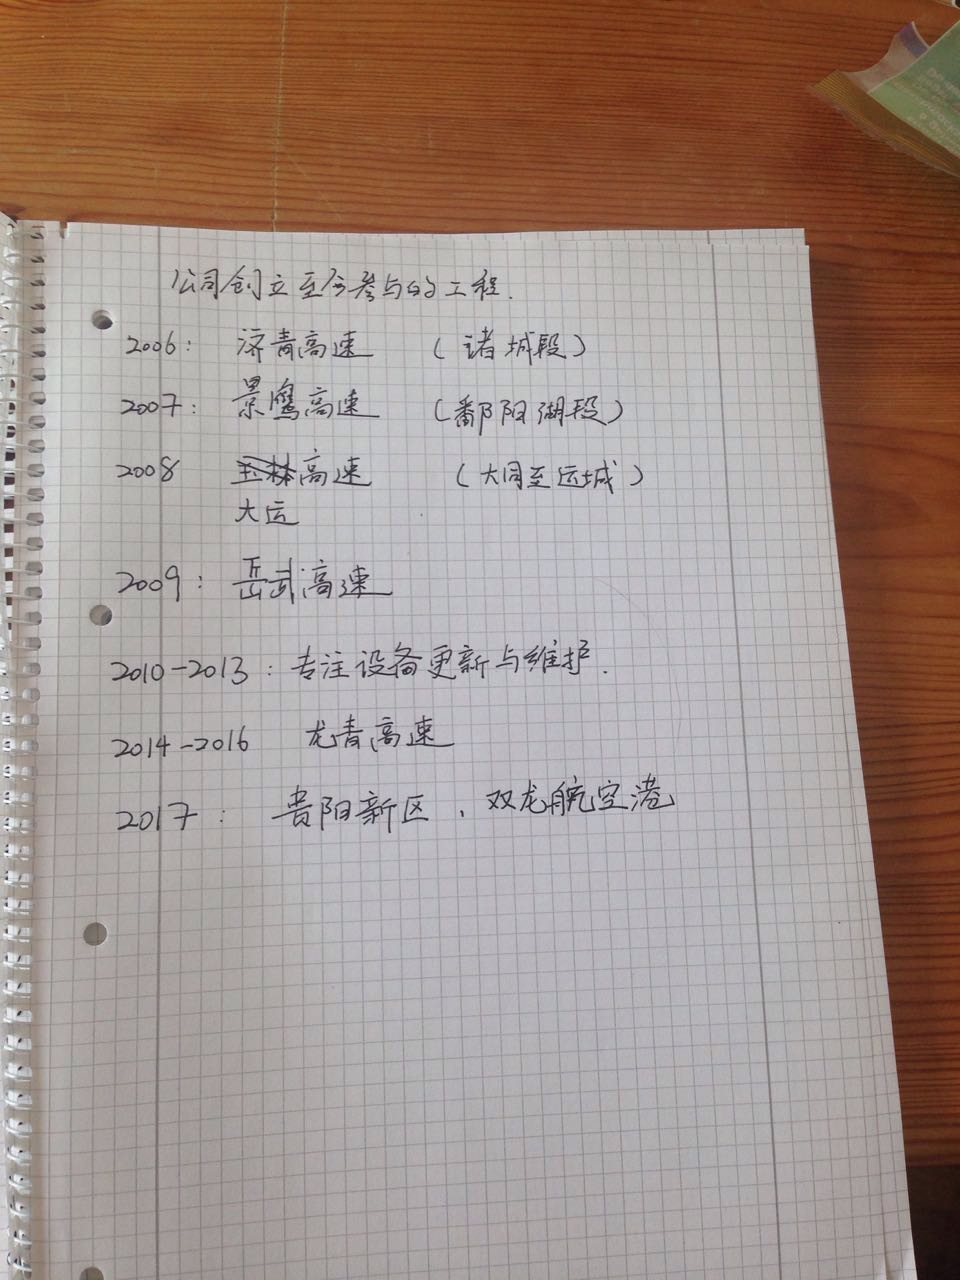 公司创立至今参与的工程.
2006: 济青高速 (诸城段)
2007: 景鹰高速 (鄱阳湖段)
2008 玉林高速 (大同至运城)
大运
2009: 岳武高速
2010-2013: 专注设备更新与维护.
2014-2016 龙青高速
2017: 贵阳新区、双龙航空港